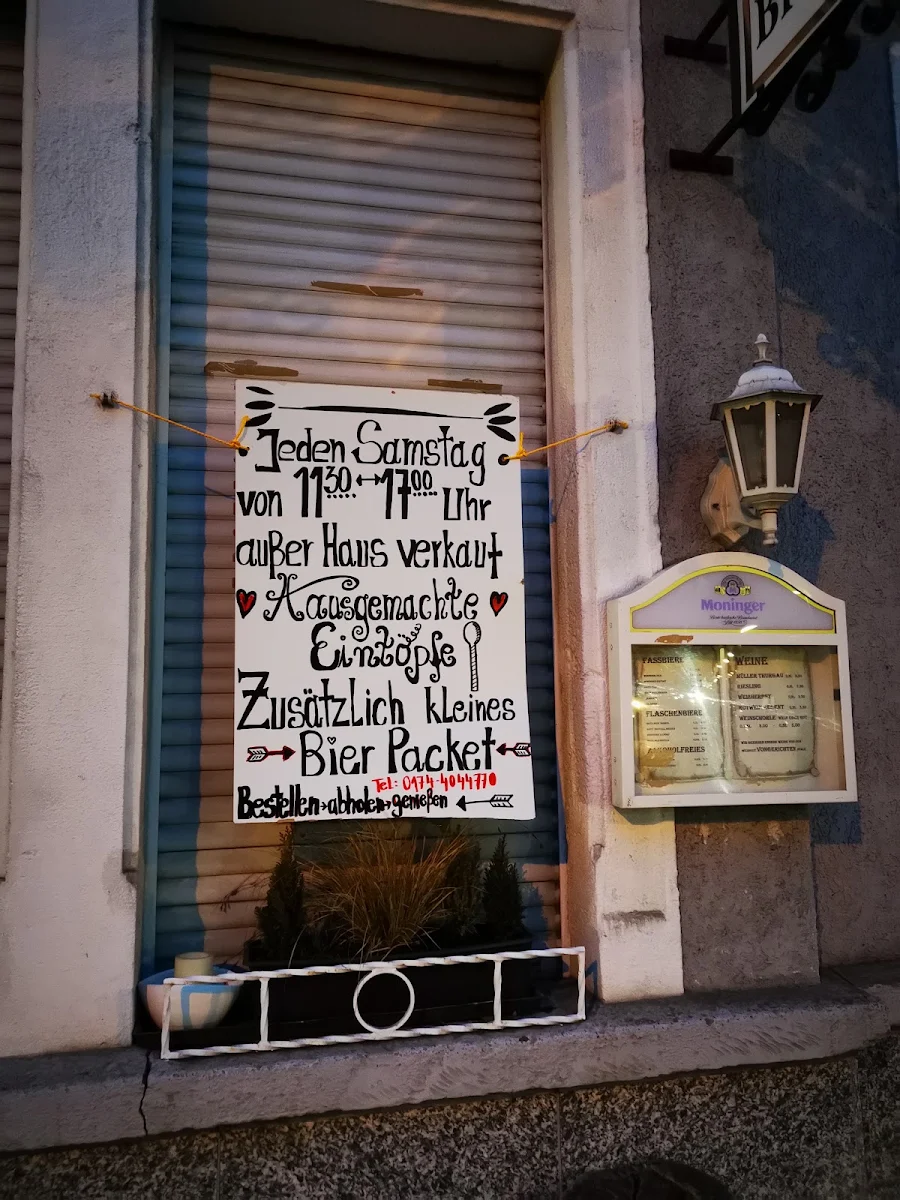 Jeden Samstag
von 11³⁰ ↔ 17⁰⁰ Uhr
außer Haus verkauf
Hausgemachte
Eintöpfe
Zusätzlich kleines
Bier Packet
Tel: 0174-4044770
Bestellen→abholen→genießen
Moninger
FASSBIERE
FLASCHENBIERE
ALKOHOLFREIES
WEINE
MÜLLER THURGAU
RIESLING
WEISSHERBST
WEINSCHORLE